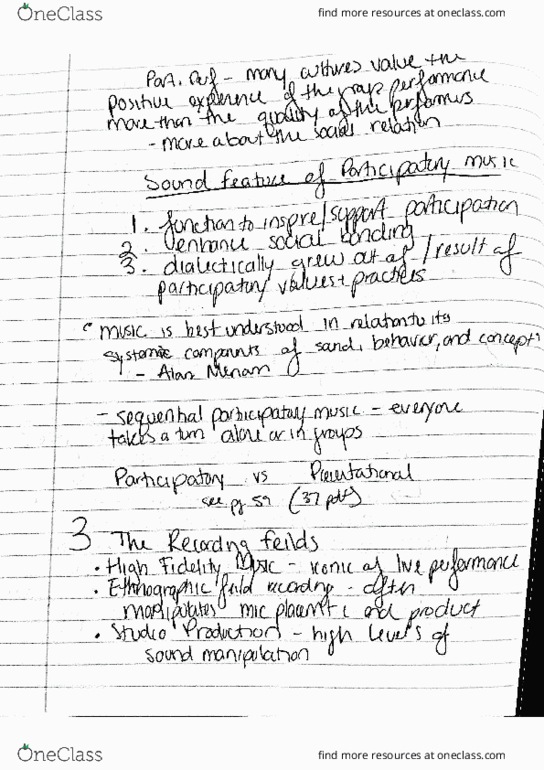 OneClass
find more resources at oneclass.com
Part. Perf - many cultures value the
positive experience of the group performance
more than the quality of the performers
- more about the social relation
Sound feature of Participatory music
1. function to inspire/support participation
2. enhance social bonding
3. dialectically grew out of / result of
participatory values + practices
" music is best understood in relation to its
systemic components of sound, behavior, and concept"
- Alan
- sequential participatory music - everyone
takes a turn alone or in groups
Participatory vs Presentational
see pg 59 (37 pdf)
3 The Recording feilds
• High Fidelity Music - iconic of live performance
• Ethnographic field recording - often
manipulates mic placement and product
• Studio Production - high levels of
sound manipulation
OneClass
find more resources at oneclass.com